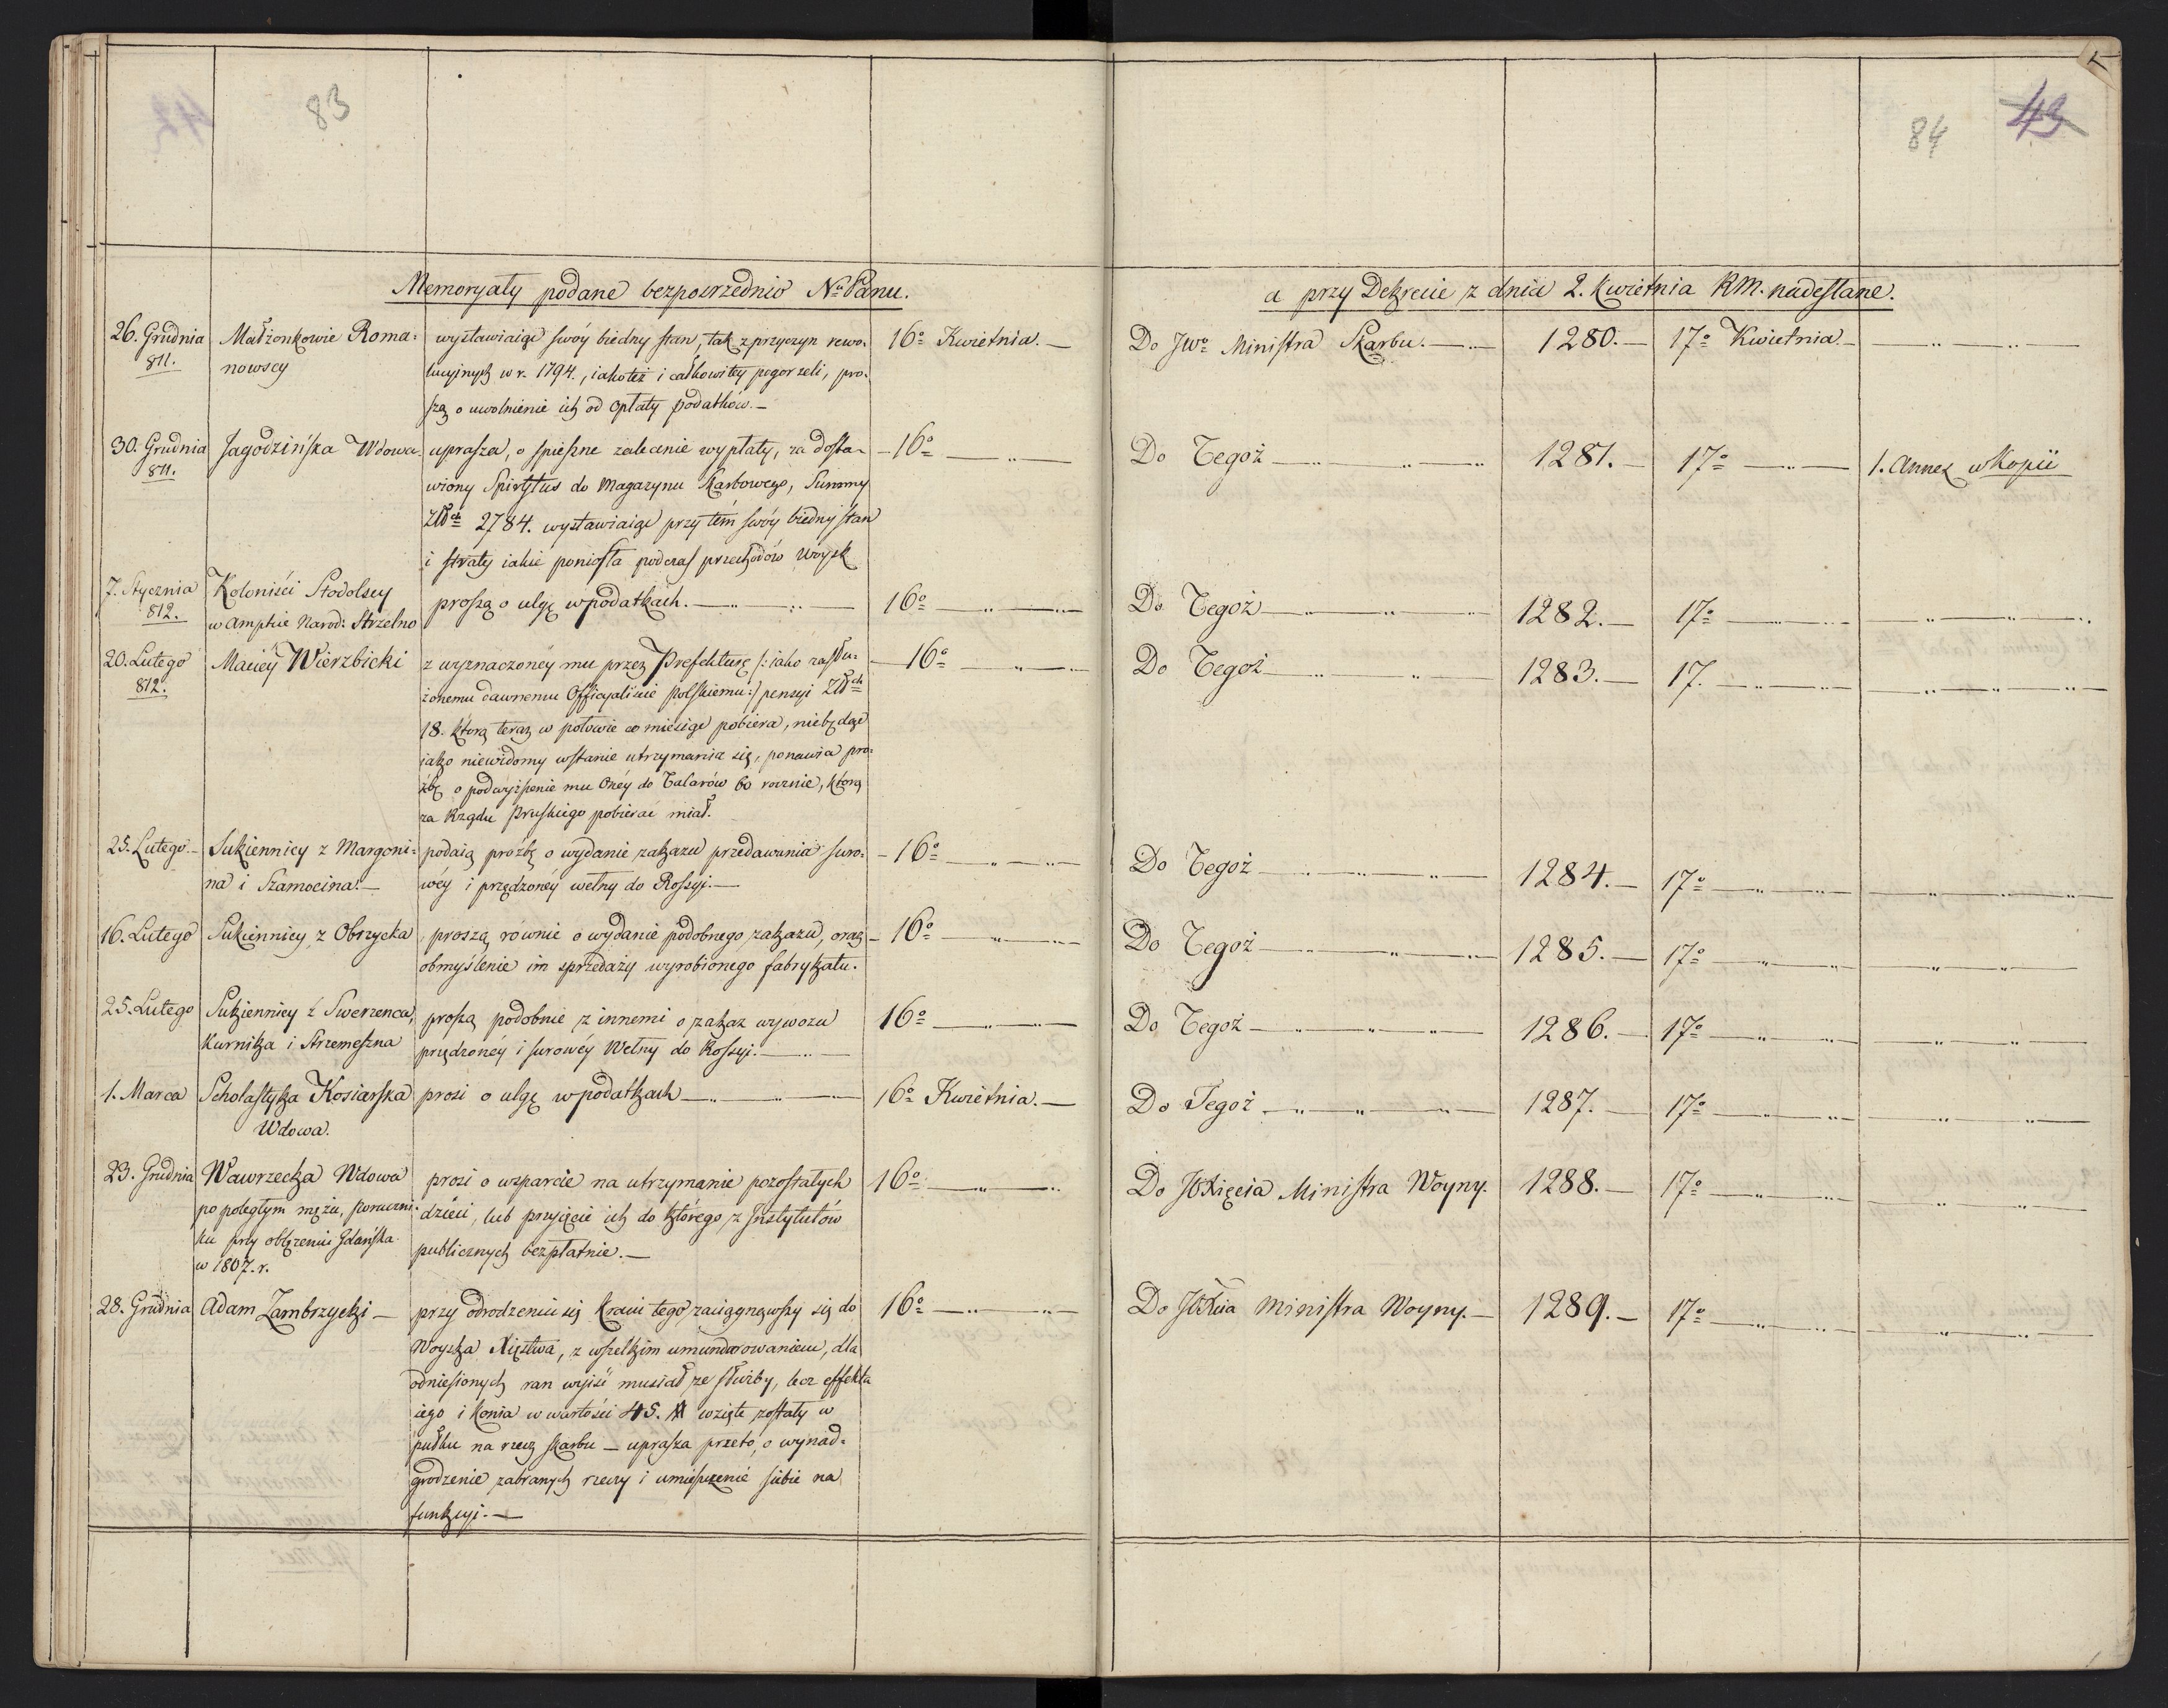 83
84 43
Memoryały podane bezpośrzednio No Panu.
a przy Dekrecie z dnia 2. Kwietnia R.M. nadesłane.
26. Grudnia 811.
Małżonkowie Roma=
nowscy
wystawiaiąc swóy biedny stan, tak z przyczyn rewo=
lucyinych w r. 1794., iakoteż i całkowitey pogorzeli, pro=
szą o uwolnienie ich od opłaty podatków.—
16o Kwietnia.—
Do JWo Ministra Skarbu.
1280.—
17o Kwietnia.—
30. Grudnia 811.
Jagodzińska Wdowa
uprasza, o spieszne zalecanie wypłaty, za dosta=
wiony Spirytus do Magazynu Skarbowego, Summy
Złłch 2784. wystawiaiąc przy tém swóy biedny stan
i straty iakie poniosła podczas przechodów Woysk
16o
Do Tegoż
1281.—
17o
1. Annex w Kopii
7. Stycznia 812.
Koloniści Stodolscy
w Amptie Narod: Strzelno
proszą o ulgę w podatkach.
16o
Do Tegoż
1282.—
17o
20. Lutego 812.
Maciey Wierzbicki
z wyznaczoney mu przez Prefekturę /: iako zasłu=
żonemu dawnemu Officyaliście Polskiemu :/ pensyi Złłch
18. którą teraz w połowie co miesiąc pobiera, niebędąc
iako niewidomy w stanie utrzymania się, ponawia pro=
źbę o podwyższenie mu Onéy do Talarów 60 rocznie, którą
za Rządu Pruskiego pobierać miał.
16o
Do Tegoż
1283.—
17.
25. Lutego.—
Sukiennicy z Margoni=
na i Szamocina.—
podaią prożbę o wydanie zakazu przedawania suro=
wéy i przędzonéy wełny do Rossyi.—
16o
Do Tegoż
1284.—
17o
16. Lutego
Sukiennicy z Obrzycka
proszą równie o wydanie podobnego zakazu, oraz
obmyślenie im sprzedaży wyrobionego fabrykatu.
16o
Do Tegoż
1285.—
17o
25. Lutego
Sukiennicy z Swerzenca,
Kurnika i Strzemeszna
proszą podobnie z innemi o zakaz wywozu
przędzonéy i surowéy Wełny do Rossyi.
16o
Do Tegoż
1286.—
17o
1. Marca
Scholastyka Kosiarska
Wdowa.
prosi o ulgę w podatkach
16o Kwietnia.—
Do Tegoż
1287.—
17o
23. Grudnia
Wawrzecka Wdowa
po poległym mężu, Poruczni=
ku przy oblężeniu Gdańska
w 1807. r.
prosi o wsparcie na utrzymanie pozostałych
dzieci, lub przyięcie ich do którego z Instytutów
publicznych bezpłatnie.—
16o
Do JOXięcia Ministra Woyny.
1288.—
17o
28. Grudnia
Adam Zambrzycki—
przy odrodzeniu się Kraiu tego zaciągnąwszy się do
Woyska Xięstwa, z wszelkim umundurowaniem, dla
odniesionych ran wyiść musiał ze służby, lecz effekta
iego i Konia w wartości 45. # wzięte zostały w
pułku na rzecz skarbu — uprasza przeto, o wynad=
grodzenie zabranych rzeczy i umieszczenie siebie na
funkcyi.—
16o
Do JOXcia Ministra Woyny.—
1289.—
17o